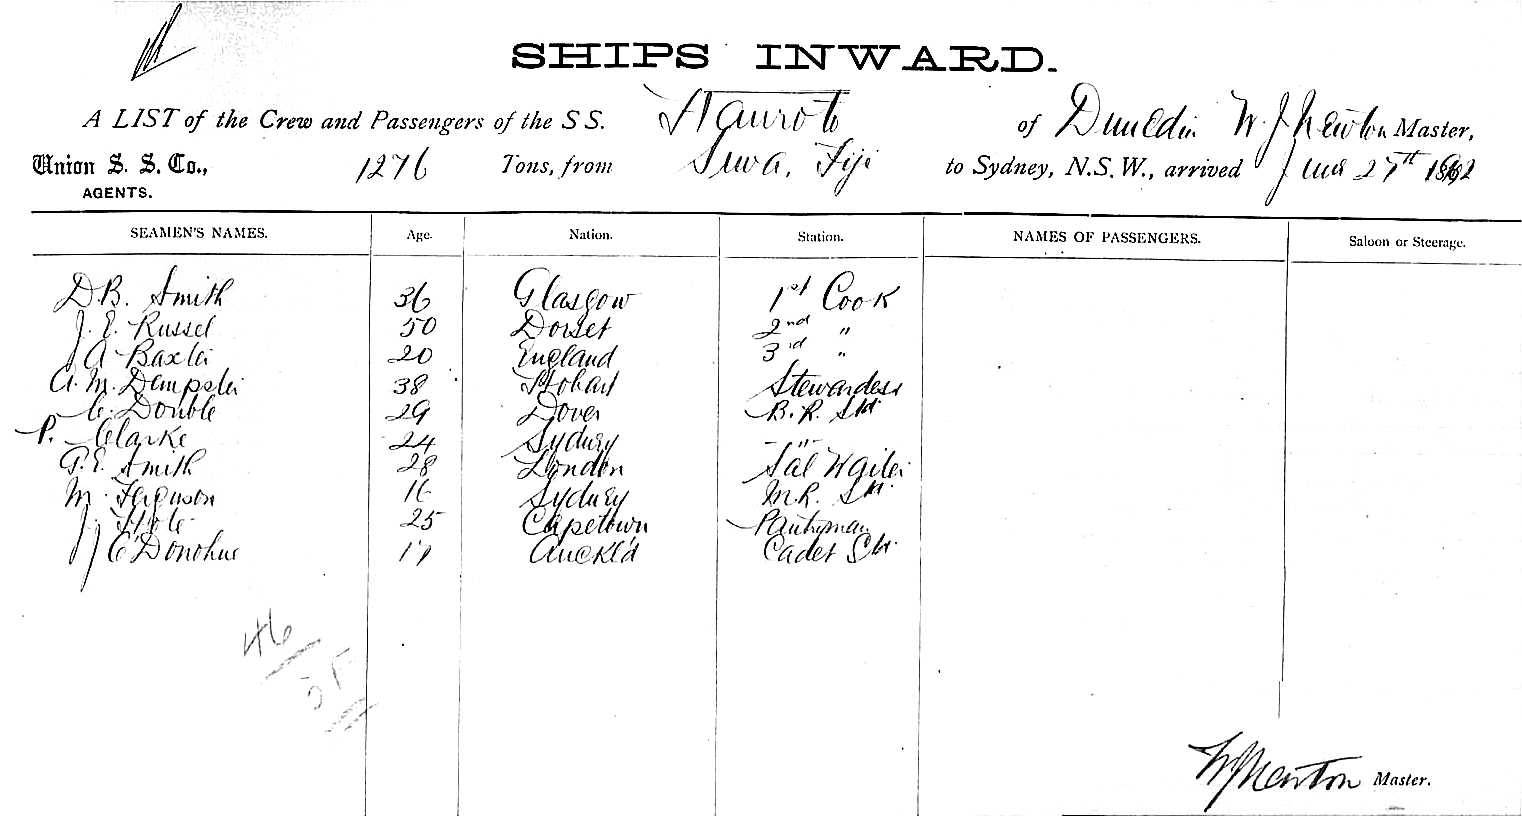 SHIPS INWARD.
A LIST of the Crew and Passengers of the S S. Hauroto of Dunedin W. J. Newton Master,
Union S. S. Co., 1276 Tons, from Suva, Fiji to Sydney, N.S.W., arrived June 27th 1892
AGENTS.
SEAMEN'S NAMES. Age. Nation. Station. NAMES OF PASSENGERS. Saloon or Steerage.
D. B. Smith 36 Glasgow 1st Cook
J. E. Russel 50 Dorset 2nd "
J A Baxter 20 England 3rd "
A. M. Dempster 38 Hobart Stewardess
C. Double 29 Dover B. R. Std
P. Clarke 24 Sydney -"-
G. E. Smith 28 London Sal Waiter
M. Ferguson 16 Sydney M.R. Std.
J. Hole 25 Capetown Pantryman
J E Donohue 17 Auckl'd Cadet Std.
46
W J Newton Master.